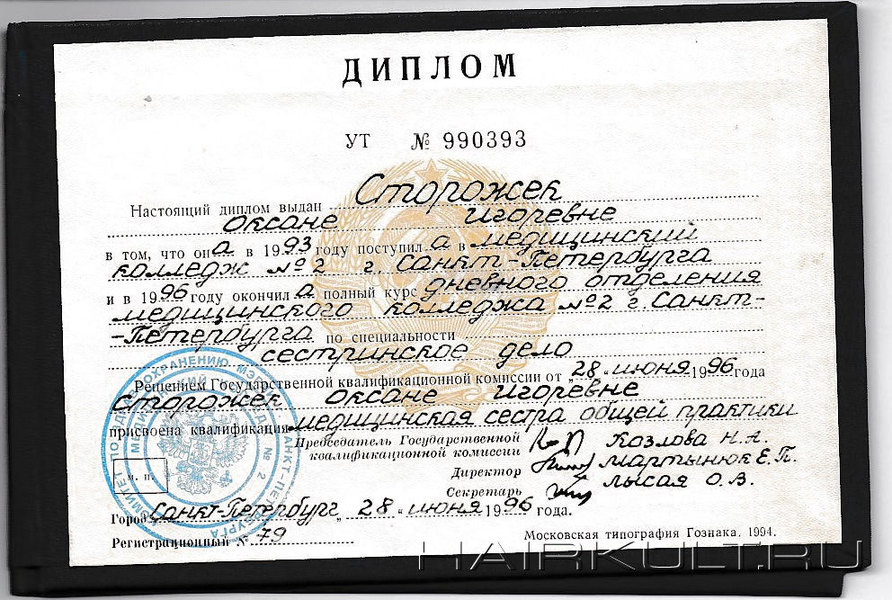 ДИПЛОМ
УТ № 990393
Настоящий диплом выдан Сторожек
Оксане Игоревне
в том, что она в 1993 году поступила в медицинский
колледж №2 г. Санкт-Петербурга
и в 1996 году окончила полный курс дневного отделения
медицинского колледжа №2 г. Санкт-
-Петербурга по специальности
сестринское дело
Решением Государственной квалификационной комиссии от "28" июня 1996 года
Сторожек Оксане Игоревне
присвоена квалификация медицинская сестра общей практики
Председатель Государственной
квалификационной комиссии Козлова Н.А.
Директор Мартынюк Е.П.
Секретарь Лысая О.В.
м. п.
Город Санкт-Петербург "28" июня 1996 года.
Регистрационный № 79
Московская типография Гознака. 1994.
HAIRKULT.RU